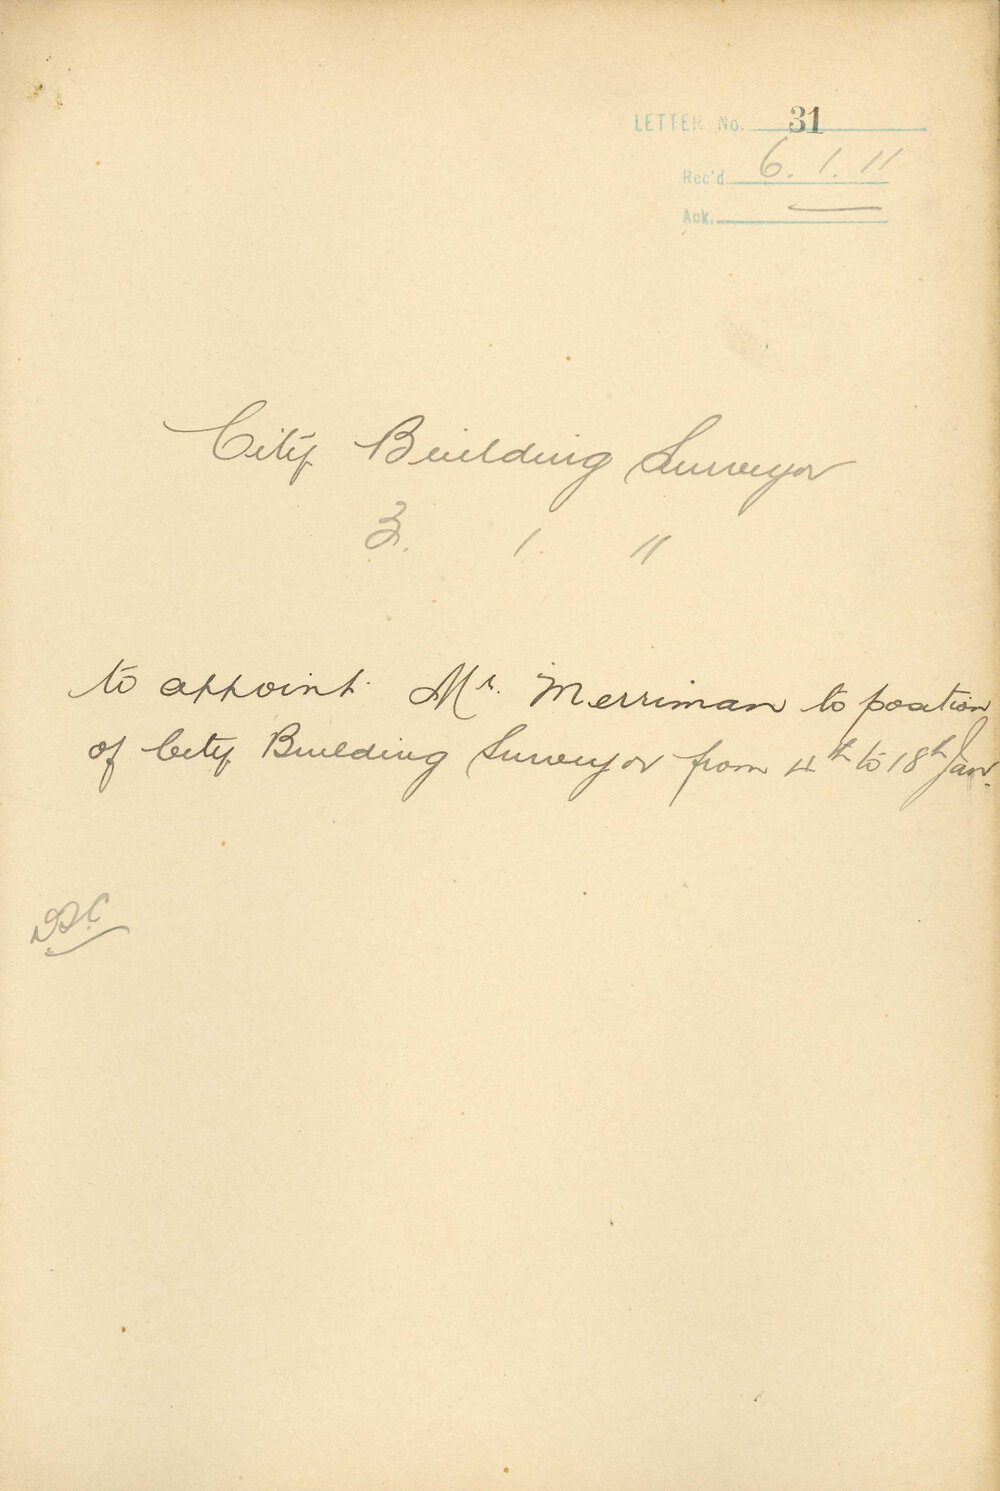 LETTER No. 31
Rec'd 6.1.11
Ack.
City Building Surveyor
3. 1. 11
to appoint Mr. Merriman to position
of City Building Surveyor from 4th to 18th Jan.